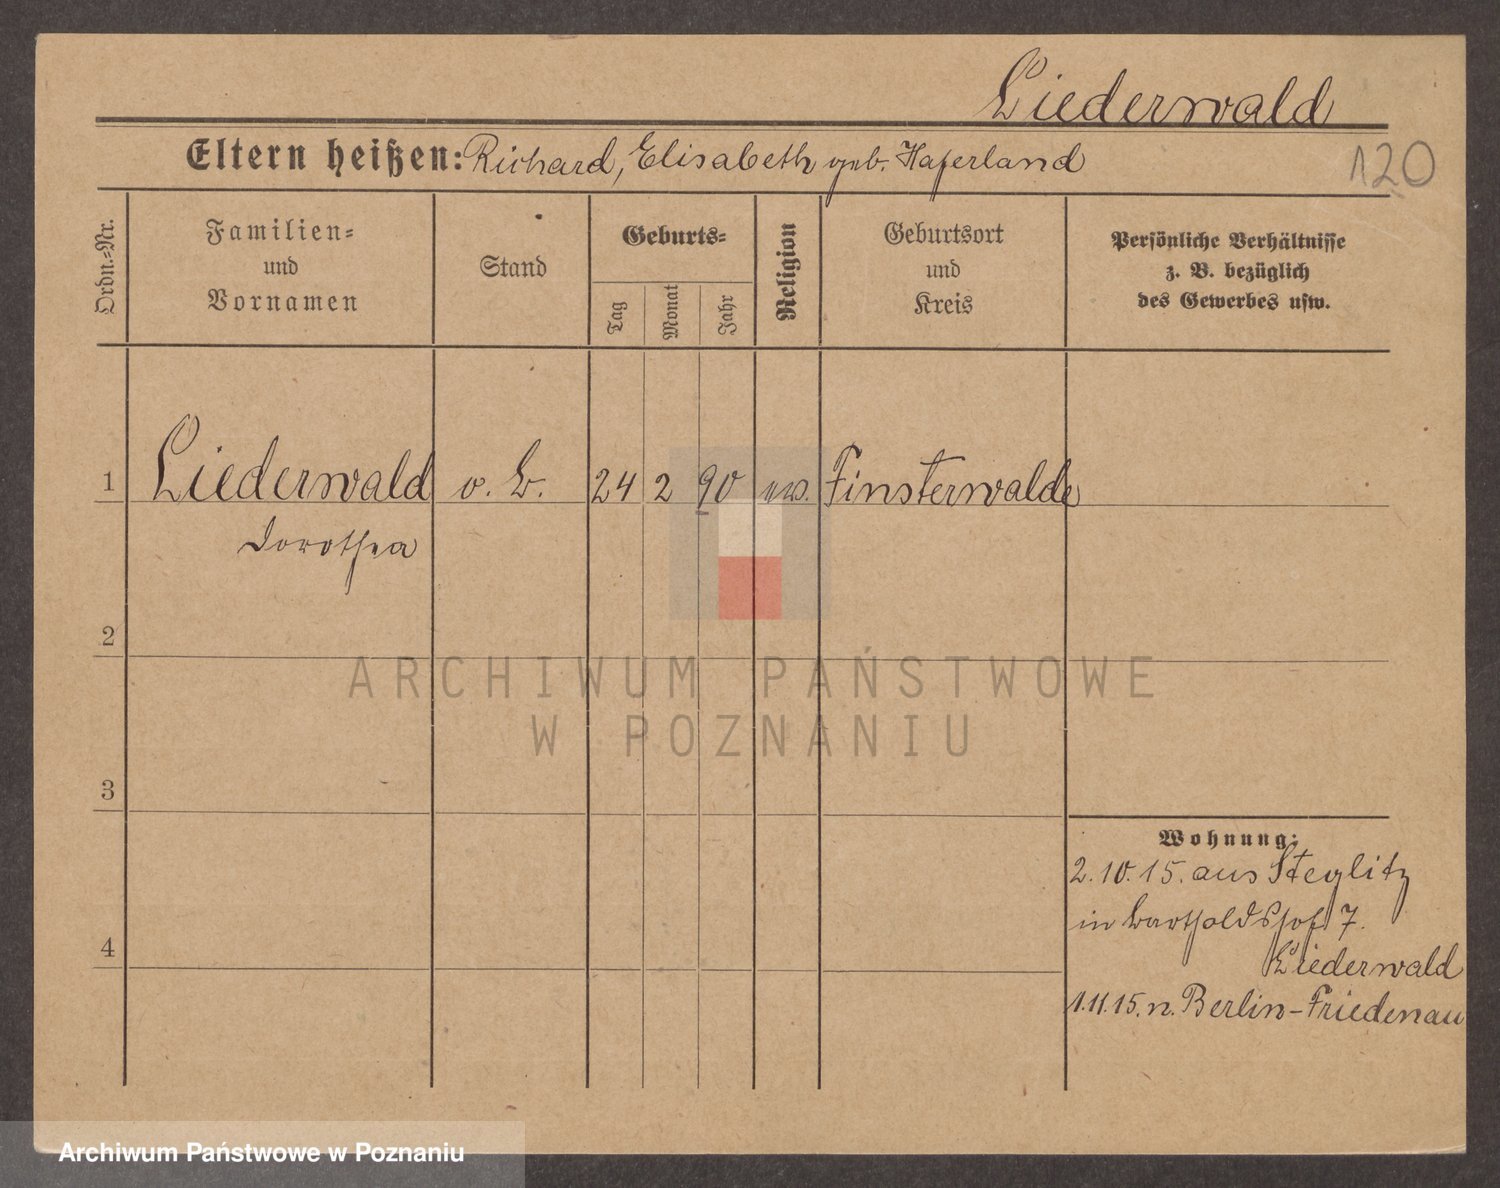 Liederwald
Eltern heißen: Richard, Elisabeth geb. Haferland
120
Ordn.-Nr.
Familien-
und
Vornamen
Stand
Geburts-
Tag
Monat
Jahr
Religion
Geburtsort
und
Kreis
Persönliche Verhältnisse
z. B. bezüglich
des Gewerbes usw.
1 Liederwald o. B. 24 2 90 ev. Finsterwalde
Dorothea
2
ARCHIWUM PAŃSTWOWE
W POZNANIU
3
Wohnung:
2.10.15. aus Steglitz
in Bartholdshof 7.
4
Liederwald
1.11.15. n. Berlin-Friedenau
Archiwum Państwowe w Poznaniu